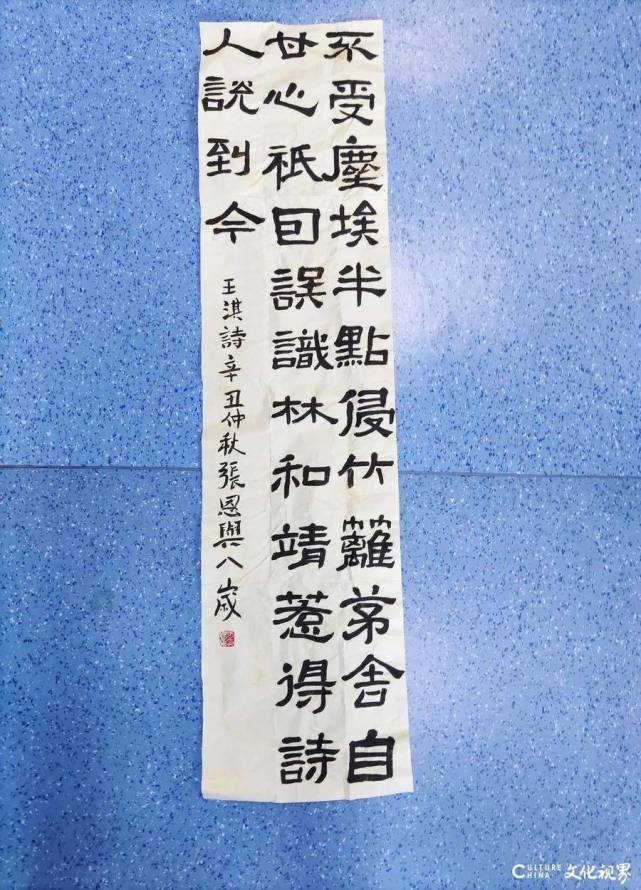 不受塵埃半點侵竹籬茅舍自
甘心祇因誤識林和靖惹得詩
人說到今
王淇詩辛丑仲秋張恩與八歲
CULTURE CHINA 文化视界